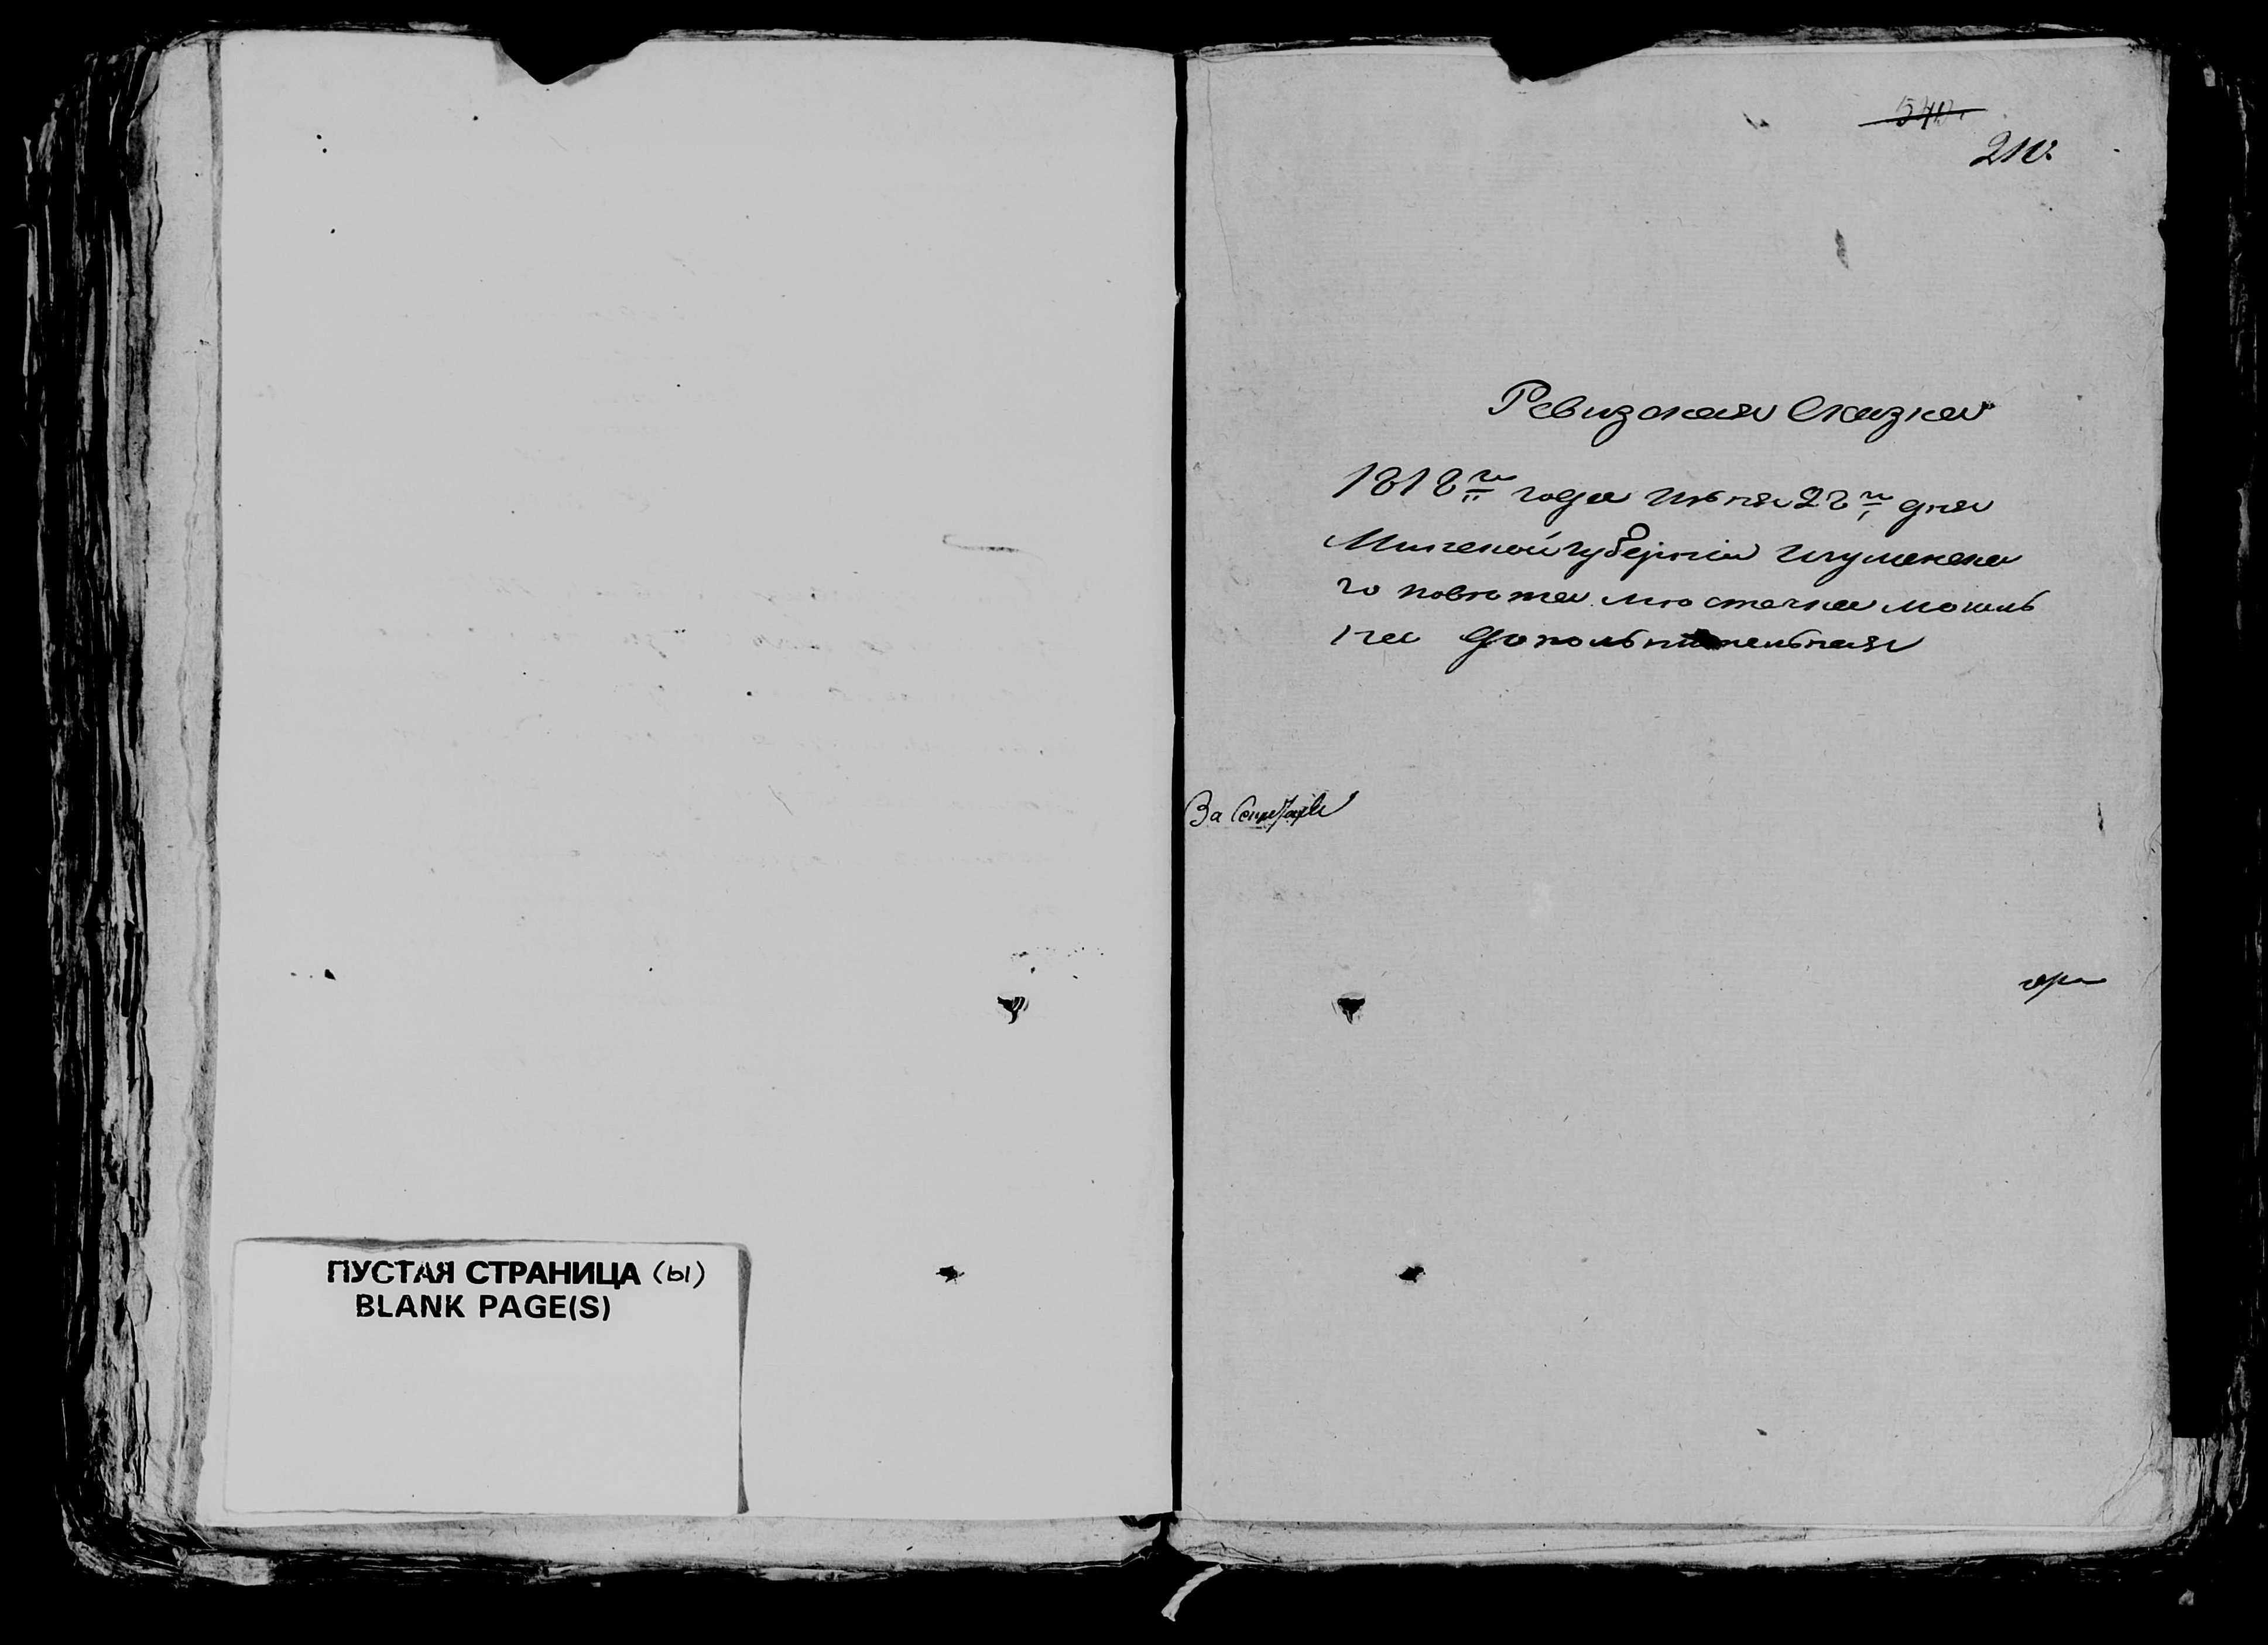 ПУСТАЯ СТРАНИЦА (ы)
BLANK PAGE(S)
540.
Ревизская Сказка
1818го года июня 28го дня
Минской губернии игуменска
го повета местечка могиль
на дополнительная
За Секретаря